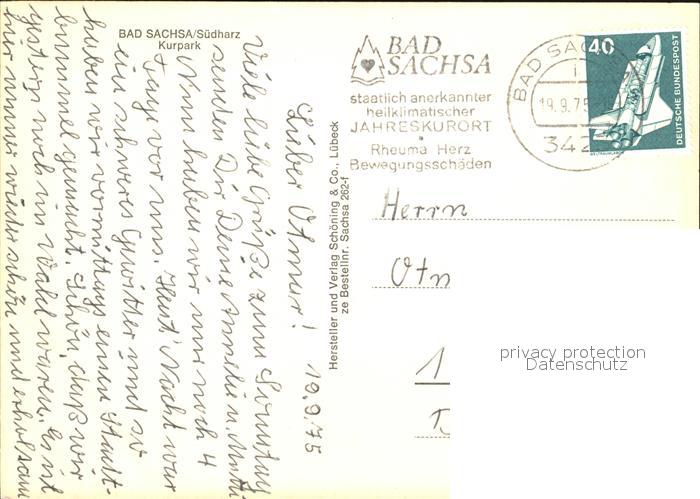 BAD SACHSA/Südharz
Kurpark
BAD
SACHSA
staatlich anerkannter
heilklimatischer
JAHRESKURORT
Rheuma Herz
Bewegungsschäden
BAD SAC
19.9.75
342
40
DEUTSCHE BUNDESPOST
WELTRAUMLABOR
Herrn
Otm
1
privacy protection
Datenschutz
Hersteller und Verlag Schöning & Co., Lübeck
ze Bestellnr. Sachsa 262-f
19.9.75
Lieber Otmar!
Viele liebe Grüße zum Sonntag
senden Dir Deine Annelie u. Mutti
Nun haben wir nur noch 4
Tage vor uns. Heut' Nacht war
ein schweres Gewitter und so
haben wir vormittags einen Stadt-
bummel gemacht. Schön, daß wir
gestern noch im Wald waren. Es ist
hier immer wieder schön und erholsam